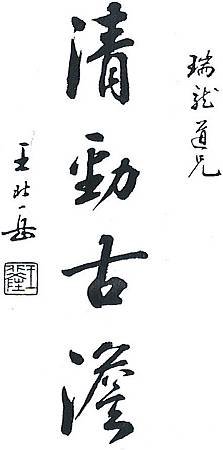 瑞龍道兄
清勁古澹
王北岳